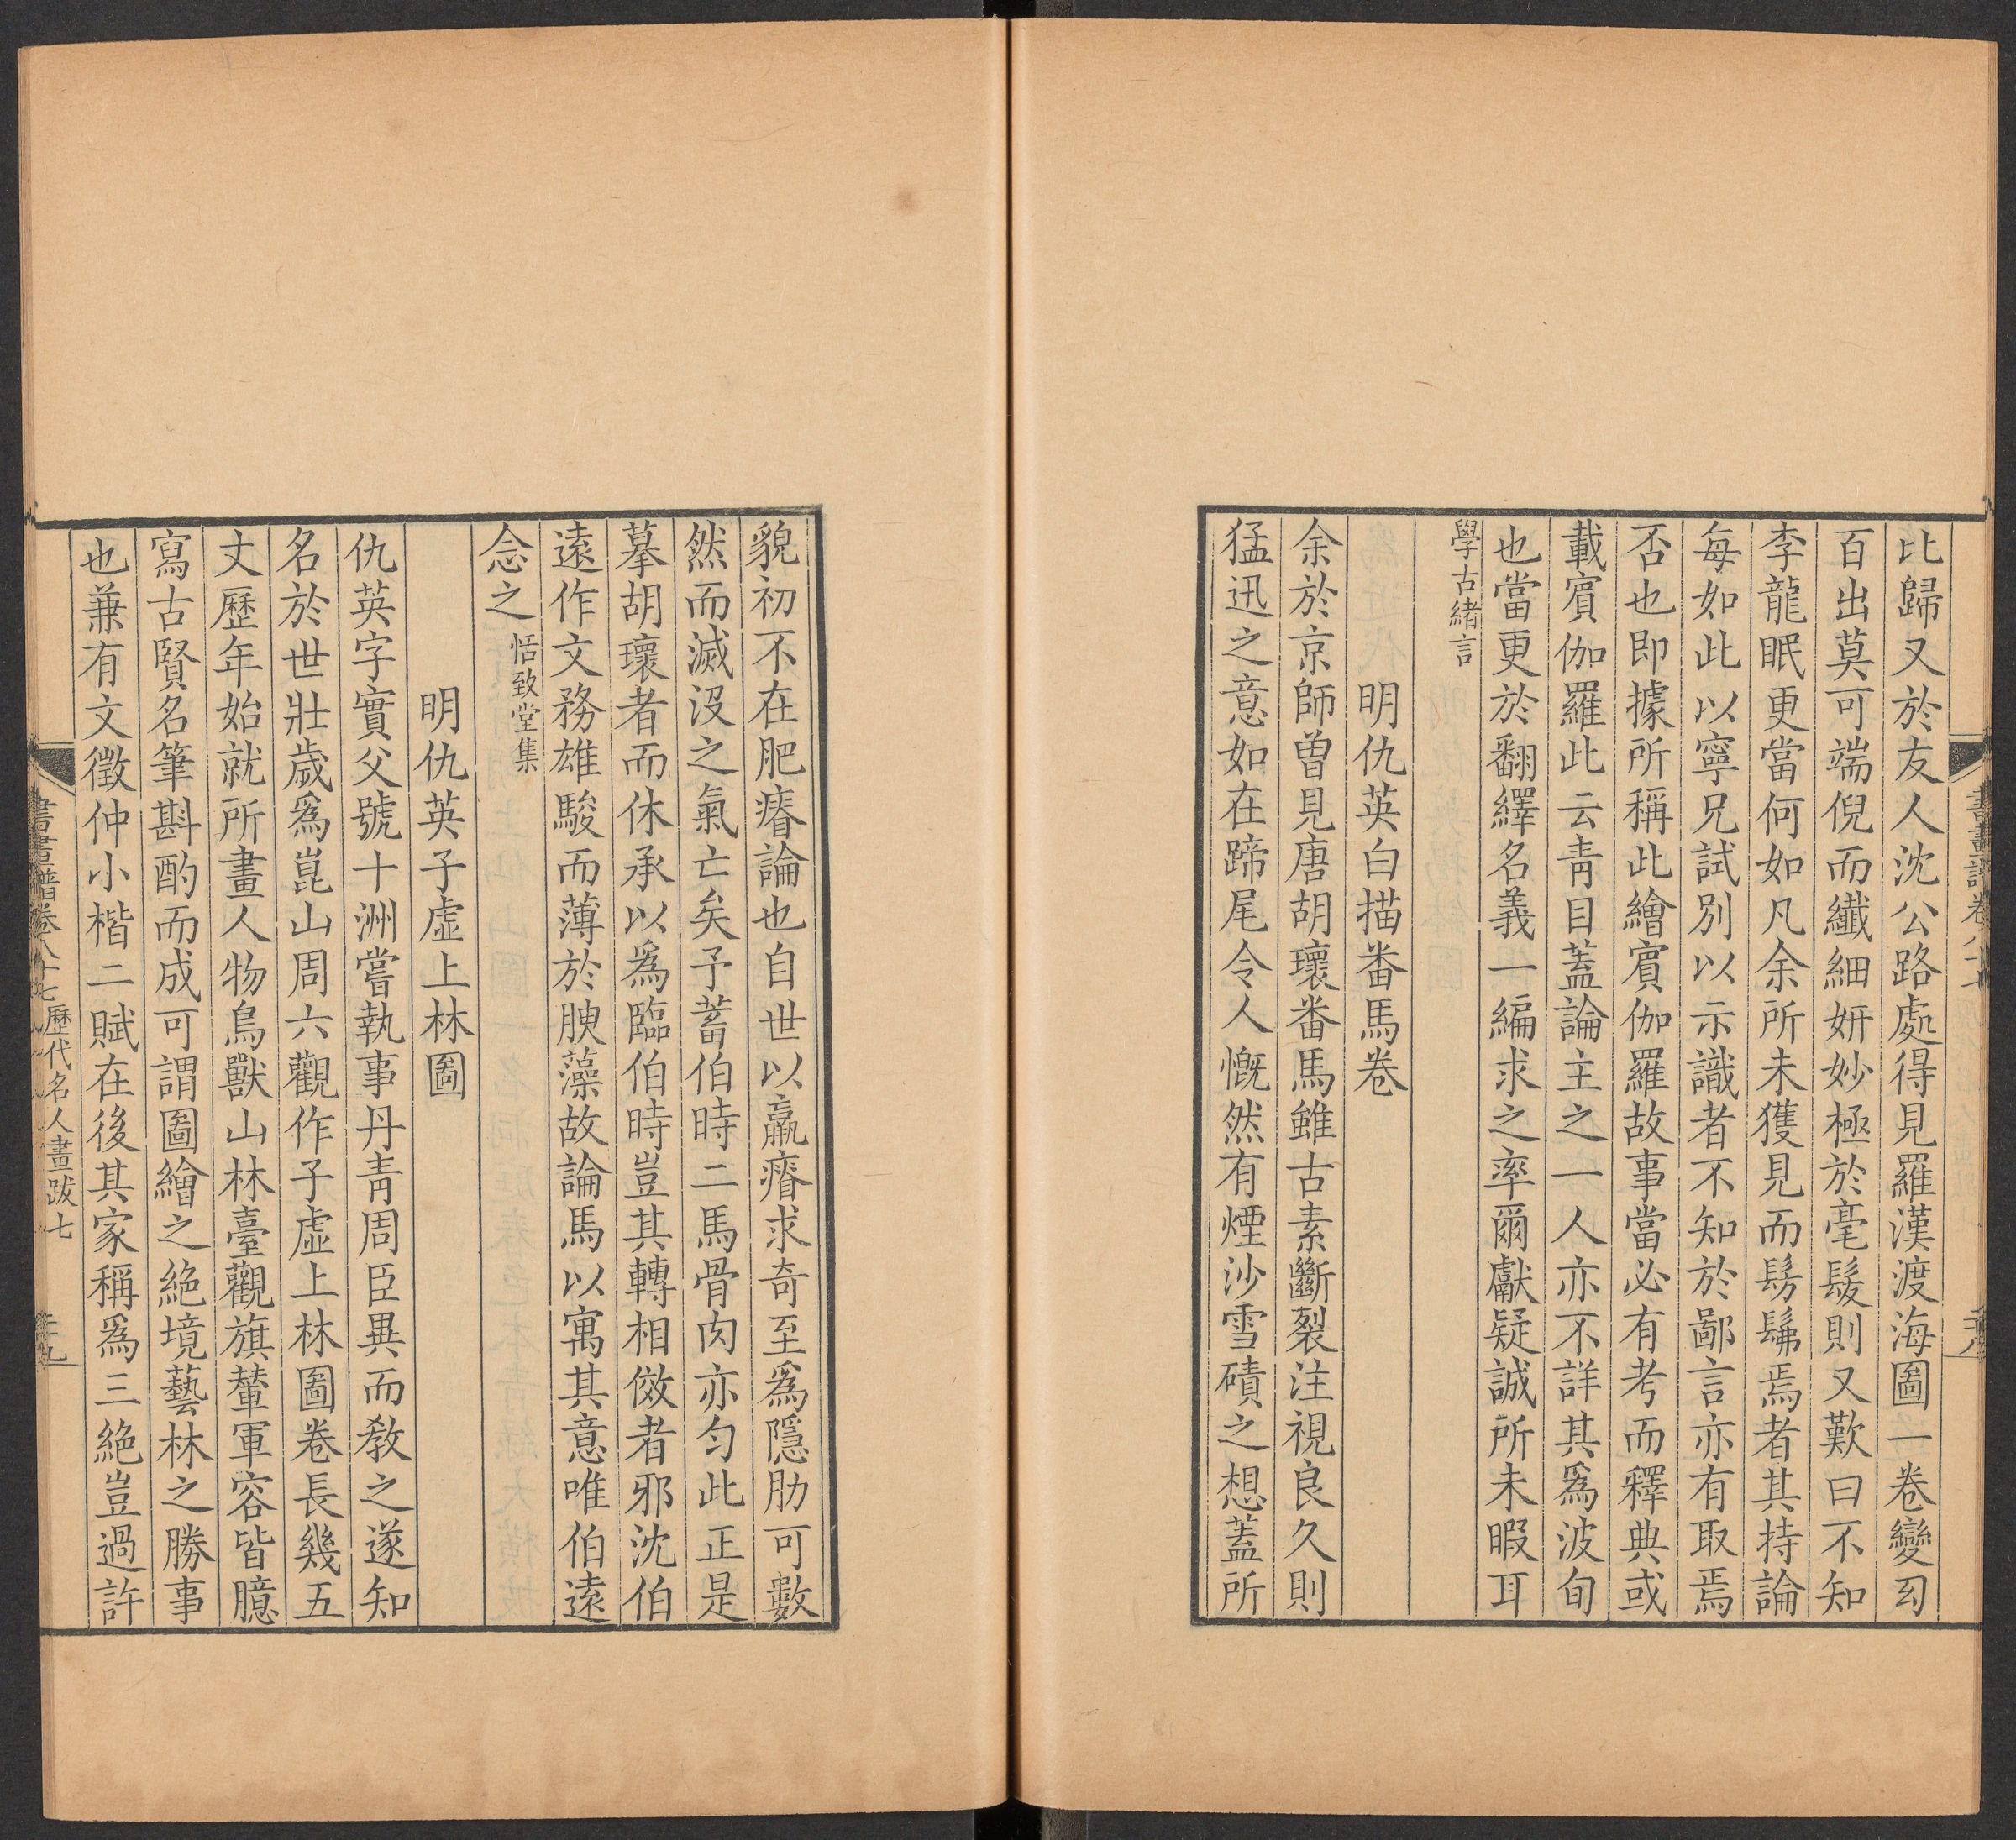 比歸又於友人沈公路處得見羅漢渡海圖一卷變幻
百出莫可端倪而纖細妍妙極於毫髮則又歎曰不知
李龍眠更當何如凡余所未獲見而髣髴焉者其持論
每如此以寧兄試別以示識者不知於鄙言亦有取焉
否也即據所稱此繪賓伽羅故事當必有考而釋典或
載賓伽羅此云青目蓋論主之一人亦不詳其爲波旬
也當更於翻繹名義一編求之率爾獻疑誠所未暇耳
學古緒言
明仇英白描番馬卷
余於京師曾見唐胡瓌番馬雖古素斷裂注視良久則
猛迅之意如在蹄尾令人慨然有煙沙雪磧之想蓋所
貌初不在肥瘠論也自世以羸瘠求奇至爲隱肋可數
然而滅沒之氣亡矣予蓄伯時二馬骨肉亦勻此正是
摹胡瓌者而休承以爲臨伯時豈其轉相倣者邪沈伯
遠作文務雄駿而薄於腴藻故論馬以寓其意唯伯遠
念之 恬致堂集
明仇英子虛上林圖
仇英字實父號十洲嘗執事丹青周臣異而教之遂知
名於世壯歲爲崑山周六觀作子虛上林圖卷長幾五
丈歷年始就所畫人物鳥獸山林臺觀旗輦軍容皆臆
寫古賢名筆斟酌而成可謂圖繪之絕境藝林之勝事
也蒹有文徵仲小楷二賦在後其家稱爲三絕豈過許
書畫譜卷八十七歷代名人畫跋七